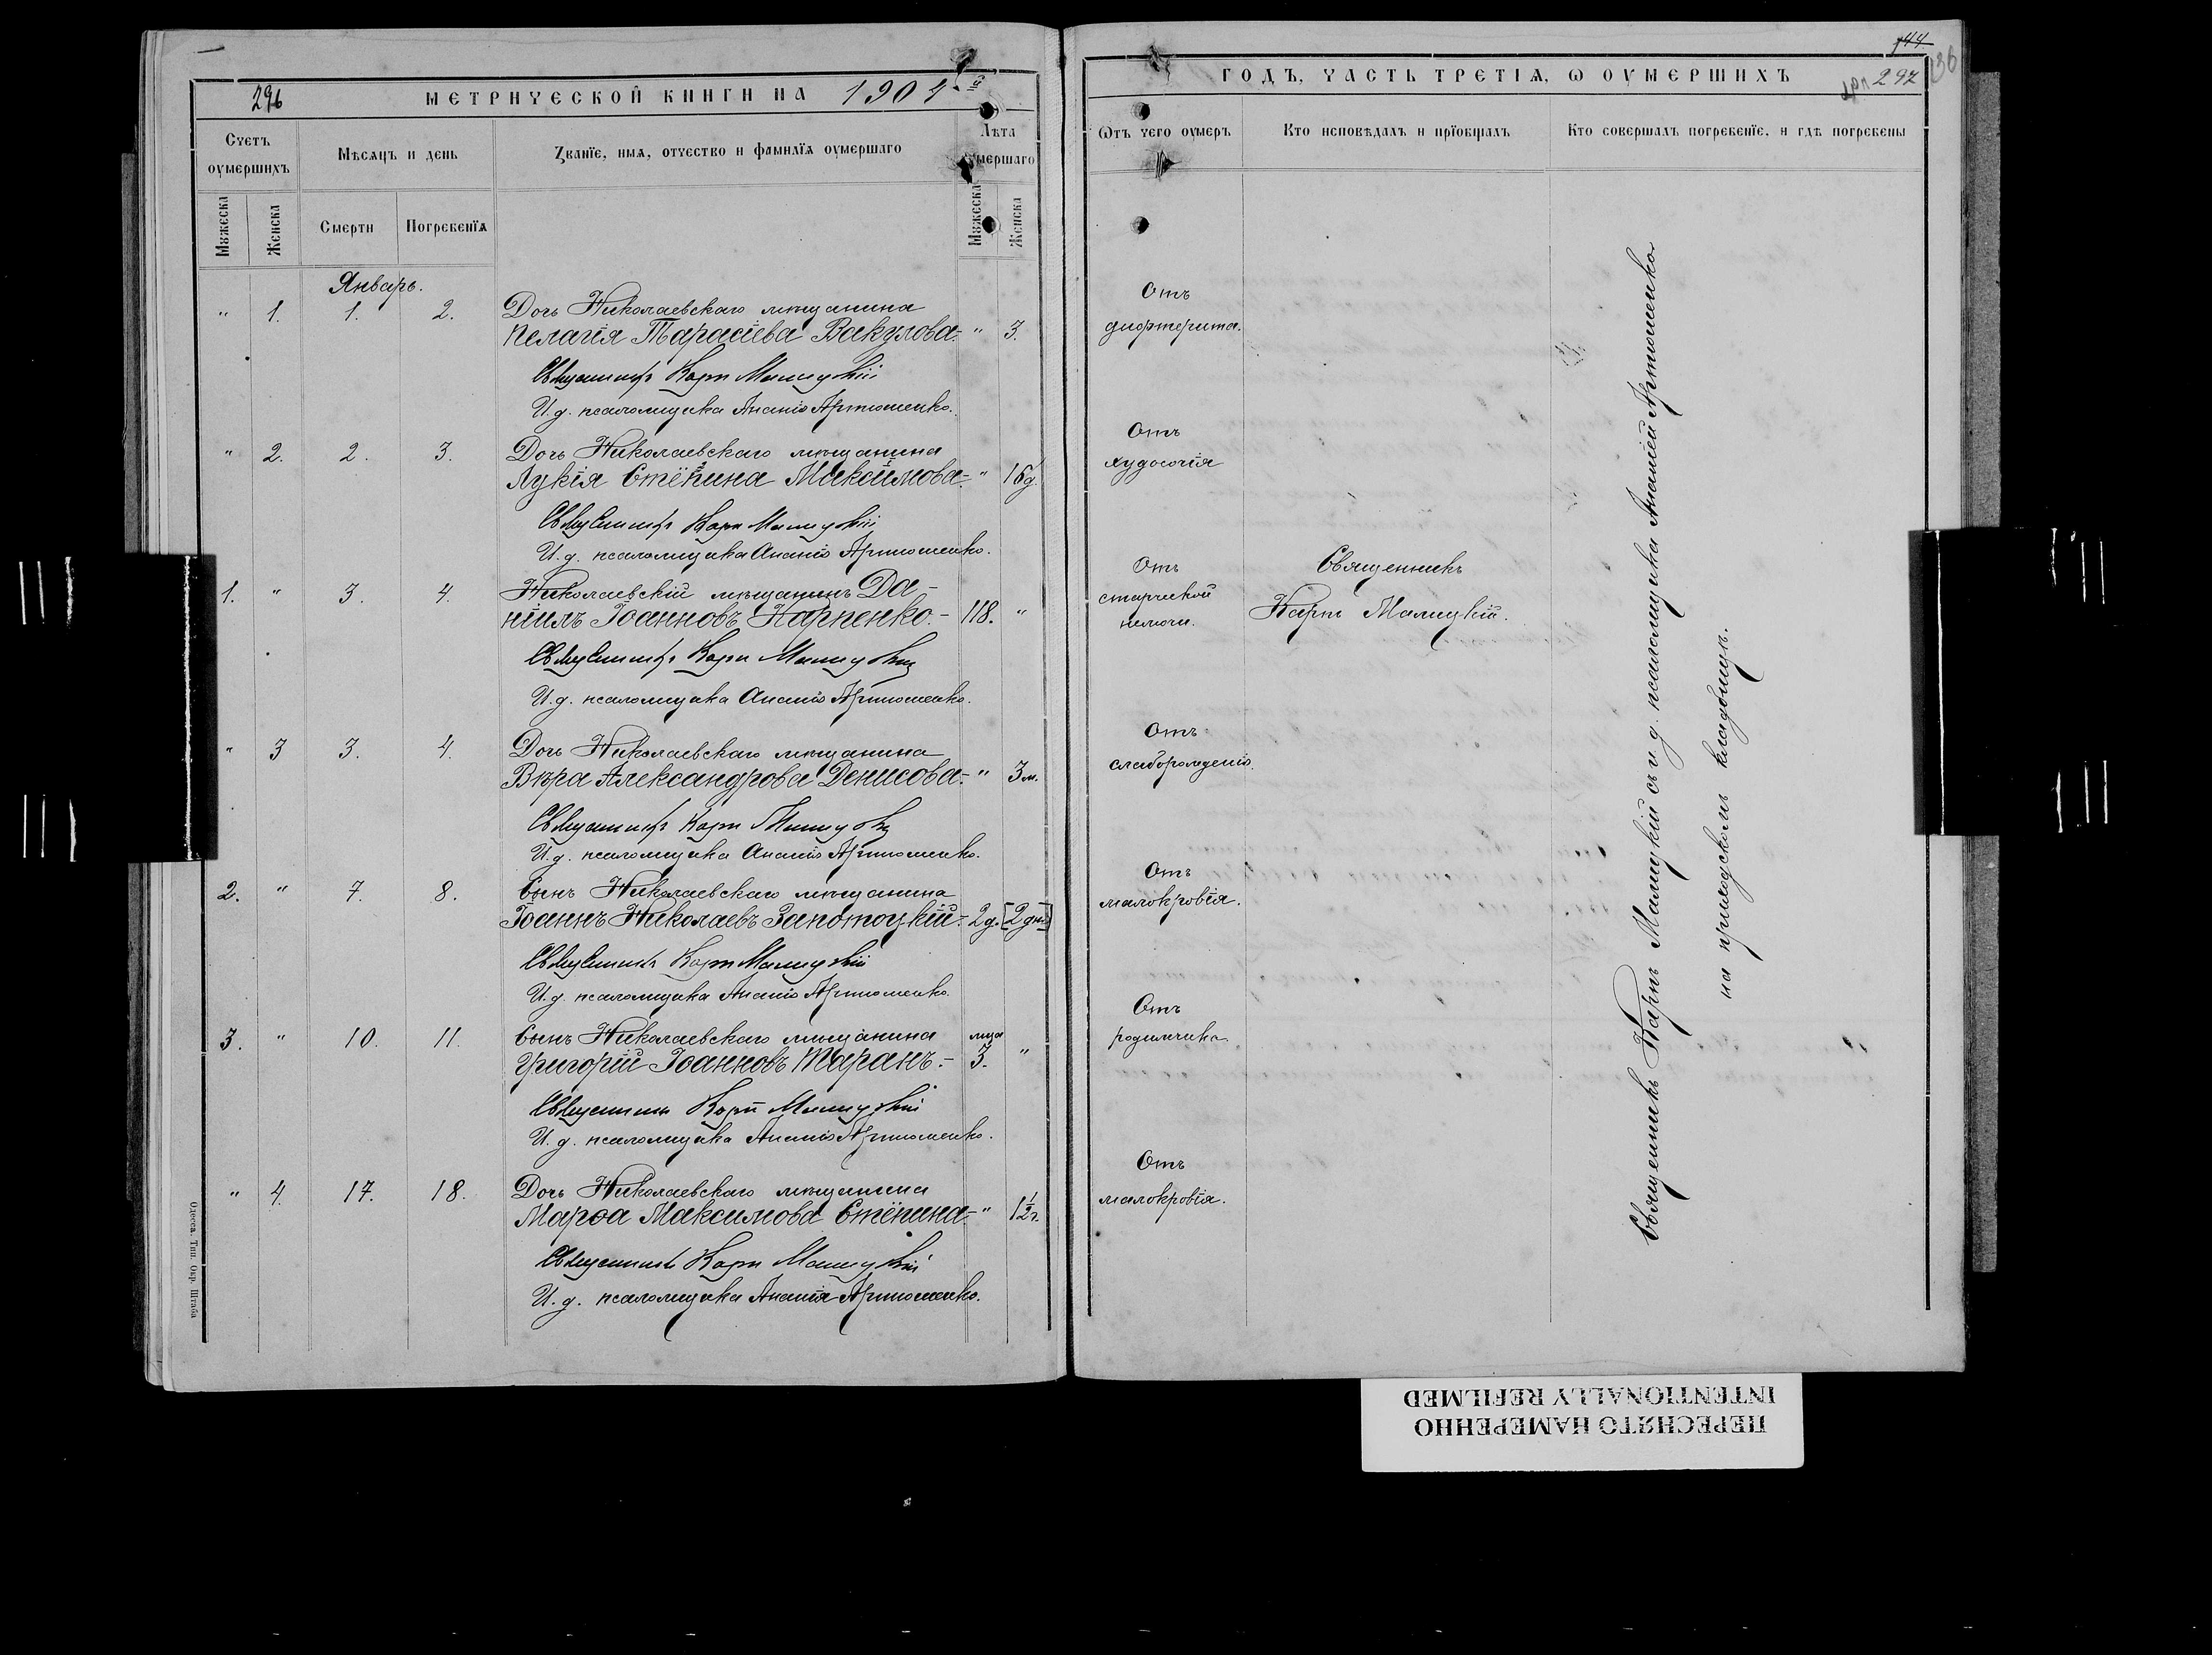 296
МЕТРИЧЕСКОЙ КНИГИ НА 1901
Счетъ
оумершихъ
Мѣсяцъ и день
Званїе, имя, отчество и фамилїя оумершаго
Лѣта
оумершаго
Мꙋжеска
Женска
Смерти
Погребенїя
Мꙋжеска
Женска
Январь.
" 1. 1. 2. Дочь Николаевскаго мѣщанина
Пелагія Тарасіева Вакулова.- " 3.
Священникъ Карпъ Малицкій
И. д. псаломщика Ананій Артюшенко.
" 2. 2. 3. Дочь Николаевскаго мѣщанина
Лукія Стёпина Максимова.- " 16 д.
Священникъ Карпъ Малицкій
И. д. псаломщика Ананій Артюшенко.
1. " 3. 4. Николаевскій мѣщанинъ Да-
ніилъ Іоанновъ Карпенко.- 118. "
Священникъ Карпъ Малицкій
И. д. псаломщика Ананій Артюшенко.
" 3 3. 4. Дочь Николаевскаго мѣщанина
Вѣра Александрова Денисова.- " 3 м.
Священникъ Карпъ Малицкій
И. д. псаломщика Ананій Артюшенко.
2. " 7. 8. Сынъ Николаевскаго мѣщанина
Іоаннъ Николаевъ Запотоцкій.- 2 д. [2 дня]
Священникъ Карпъ Малицкій
И. д. псаломщика Ананій Артюшенко.
3. " 10. 11. Сынъ Николаевскаго мѣщанина мца
Григорій Іоанновъ Таранъ.- 3. "
Священникъ Карпъ Малицкій
И. д. псаломщика Ананій Артюшенко.
" 4. 17. 18. Дочь Николаевскаго мѣщанина
Марѳа Максимова Стёпина.- " 1½ г.
Священникъ Карпъ Малицкій
И. д. псаломщика Ананія Артюшенко.
Одесса. Тип. Окр. Штаба
144
ГОДЪ, ЧАСТЬ ТРЕТІЯ, Ѡ ОУМЕРШИХЪ
297
136
Ѿтъ чего оумеръ
Кто исповѣдалъ и прїобщалъ
Кто совершалъ погребенїе, и гдѣ погребены
Отъ
дифтерита.
Отъ
худосочія
Отъ
старческой
немочи.
Священникъ
Карпъ Малицкій.
Отъ
слаборожденія.
Отъ
малокровія.
Отъ
родимчика.
Отъ
малокровія.
Священникъ Карпъ Малицкій съ и. д. псаломщика Ананіей Артюшенко
на приходскомъ кладбищѣ.
ПЕРЕСНЯТО НАМЕРЕННО
INTENTIONALLY REFILMED